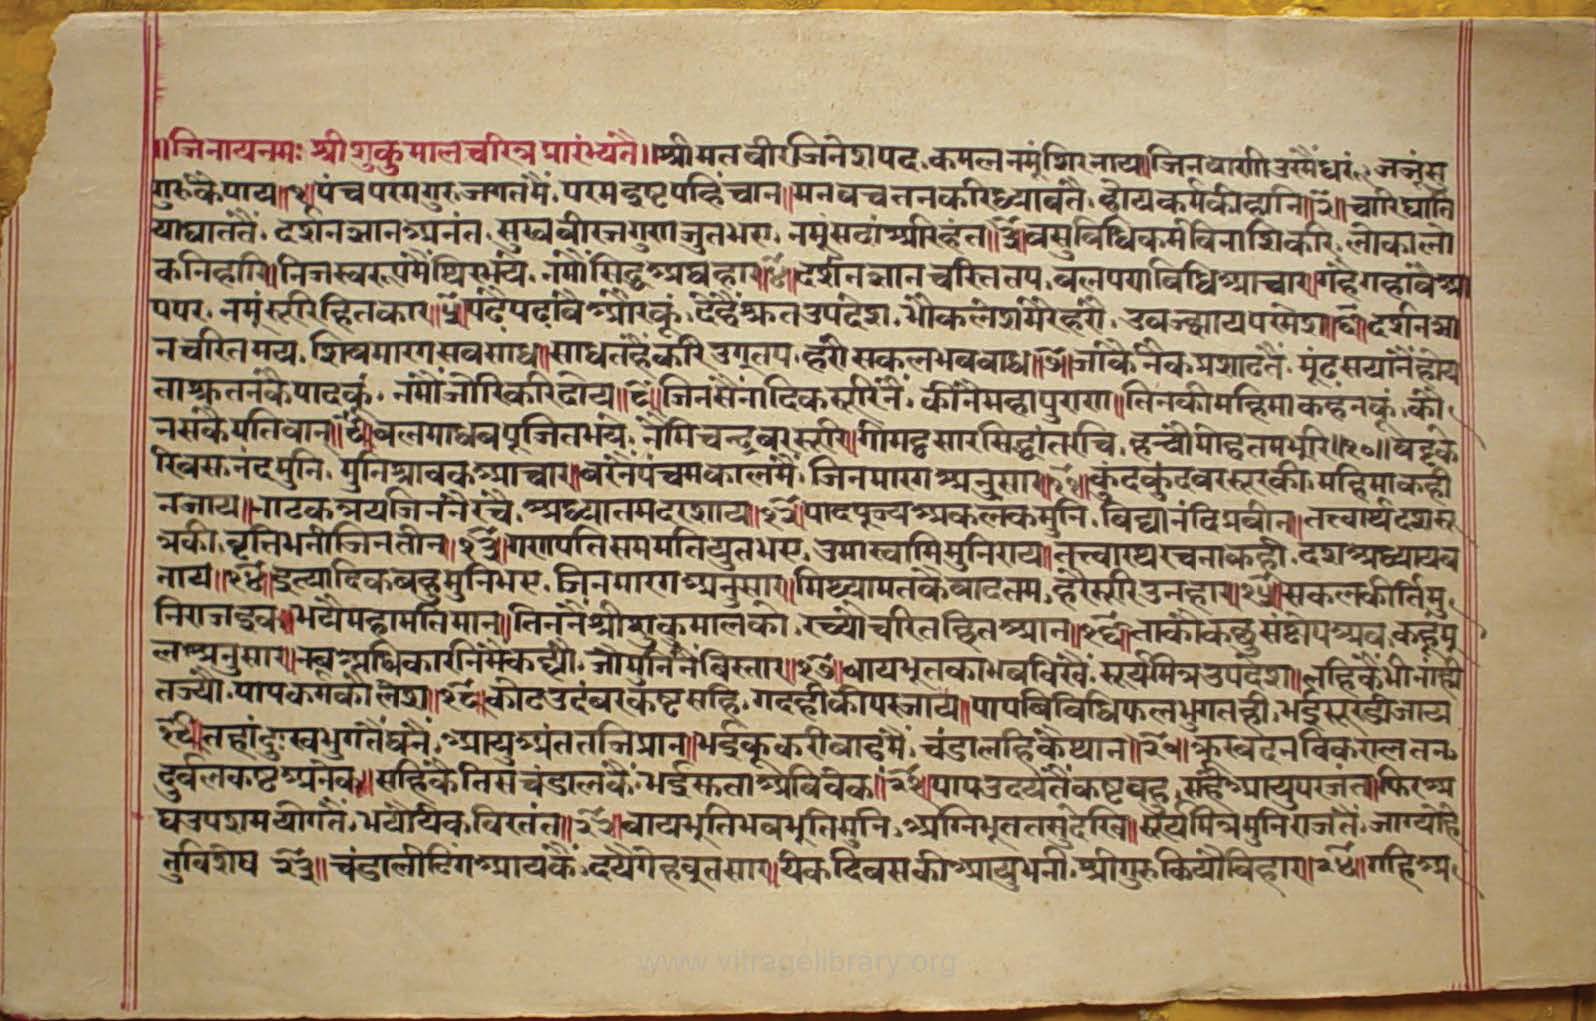 ॥जिनायनमः श्रीशुकुमालचरित्रप्रारंभ्यंतै॥श्रीमतवीरजिनेशपद,कमलनमूंशिरनाय॥जिनवाणीउरमैंधरूं,जजूंसु
गुरुकैपाय॥१॥पंचपरमगुरुजगतमैं,परमइष्टपहिंचान॥मनवचतनकरिध्यावतैं,होयकर्मकीहानि॥२॥च्यारिघाति
याघाततैं,दर्शनज्ञानअनंत,सुखवीरजगुणजुतभए,नमूंसदांअरिहंत॥३॥वसुविधिकर्मविनाशिकरि,लोकालो
कनिहारि॥निजस्वरूपमैंथिरभये,नमौंसिद्धअघहार॥४॥दर्शनज्ञानचरिततप,वलपणविधिआचार॥गहैगहांवैआ
पपर,नमूंसूरिहितकार॥५॥पढैंपढांवैऔरकूं,देंहैंश्रुतउपदेश,भौकलेशमेरेहरौ,उवज्झायपरमेश॥६॥दर्शनज्ञा
नचरितमय,शिवमारगसवसाध॥साधतहैंकरिउग्रतप,हरौसकलभववाध॥७॥जांकैनैंकप्रशादतैं,मूंढसयांनैंहोय
ताश्रुतनंकैपादकूं,नंमौंजोरिकरिदोय॥८॥जिनसैंनादिकसूरिनैं,कींनैमहापुराण॥तिनकीमहिमाकहंनकूं,कौ
नसकैमतिवान॥९॥वलमाधवपूजितभये,नेमिचन्द्रवरसूरि॥गोमट्टसारसिद्धांतरचि,हन्यौंमोहतमभूरि॥१०॥वट्टके
रिवसुनंदमुनि,मुनिश्रावकआचार॥वरंनैंपंचमकालमैं,जिनमारगअनुसार॥११॥कुंदकुंदवरसूरकी,महिमाकही
नजाय॥नाटकत्रयजिननैंरचै,अध्यातमदरशाय॥१२॥पादपूज्यअकलकमुनि,विद्यानंदिप्रवीन॥तत्वार्थदशसू
त्रकी,वृत्तिभनीजिनतीन॥१३॥गणपतिसममतियुतभए,उमास्वामिमुनिराय॥तत्त्वारथरचनाकही,दशअध्यायव
नाय॥१४॥इत्यादिकबहुमुनिभए,जिनमारगअनुसार॥मिथ्यामतकैवादतम,हरैसूरिउनहार॥१५॥सकलकीर्तिमु
निराजइव॥भयैमहामतिमान॥तिननैंश्रीशुकुमालकौ,रच्यौचरितहितआन॥१६॥ताकौंकछुसंक्षेपअव,कहूंमू
लअनुसार॥नवअधिकारनिमेंकह्यौ,जोमुनिनैंविस्तार॥१७॥वायभूतकाभवविखैं,सूर्यमित्रउपदेश॥लहिकैंभीनांही
तज्यौ,पापकर्मकौलेश॥१८॥कोटउदंबरकष्टसहि,गदहीकीपरजाय॥पापविविधिफलभुगतही,भईसूरडीजाय
१९॥तहांदुःखभुगतैंघनैं,आयुअंततजिप्रान॥भईकूकरीवाडमैं,चंडालहिकैथान॥२०॥क्रूरवदनविकरालतन,
दुर्वलकष्टअनेक॥सहिकैतिसचंडालकैं,भईसुताअविवेक॥२१॥पापउदयतैंकष्टवहु,सहैआयुपरजंत॥फिरअ
घउपशमयोगतैं,भयौयेकविरतंत॥२२॥वायभूतिभवभूतिमुनि,अग्निभूततसुदेखि॥सूर्यमित्रमुनिराजतैं,जाग्योहे
तुविशेष२३॥चंडालीढिंगआयकैं,दयैगेहवृतसार॥येकदिवसकीआयुभनी,श्रीगुरुकियौविहार॥२४॥गहिअ
www.vitragelibrary.org